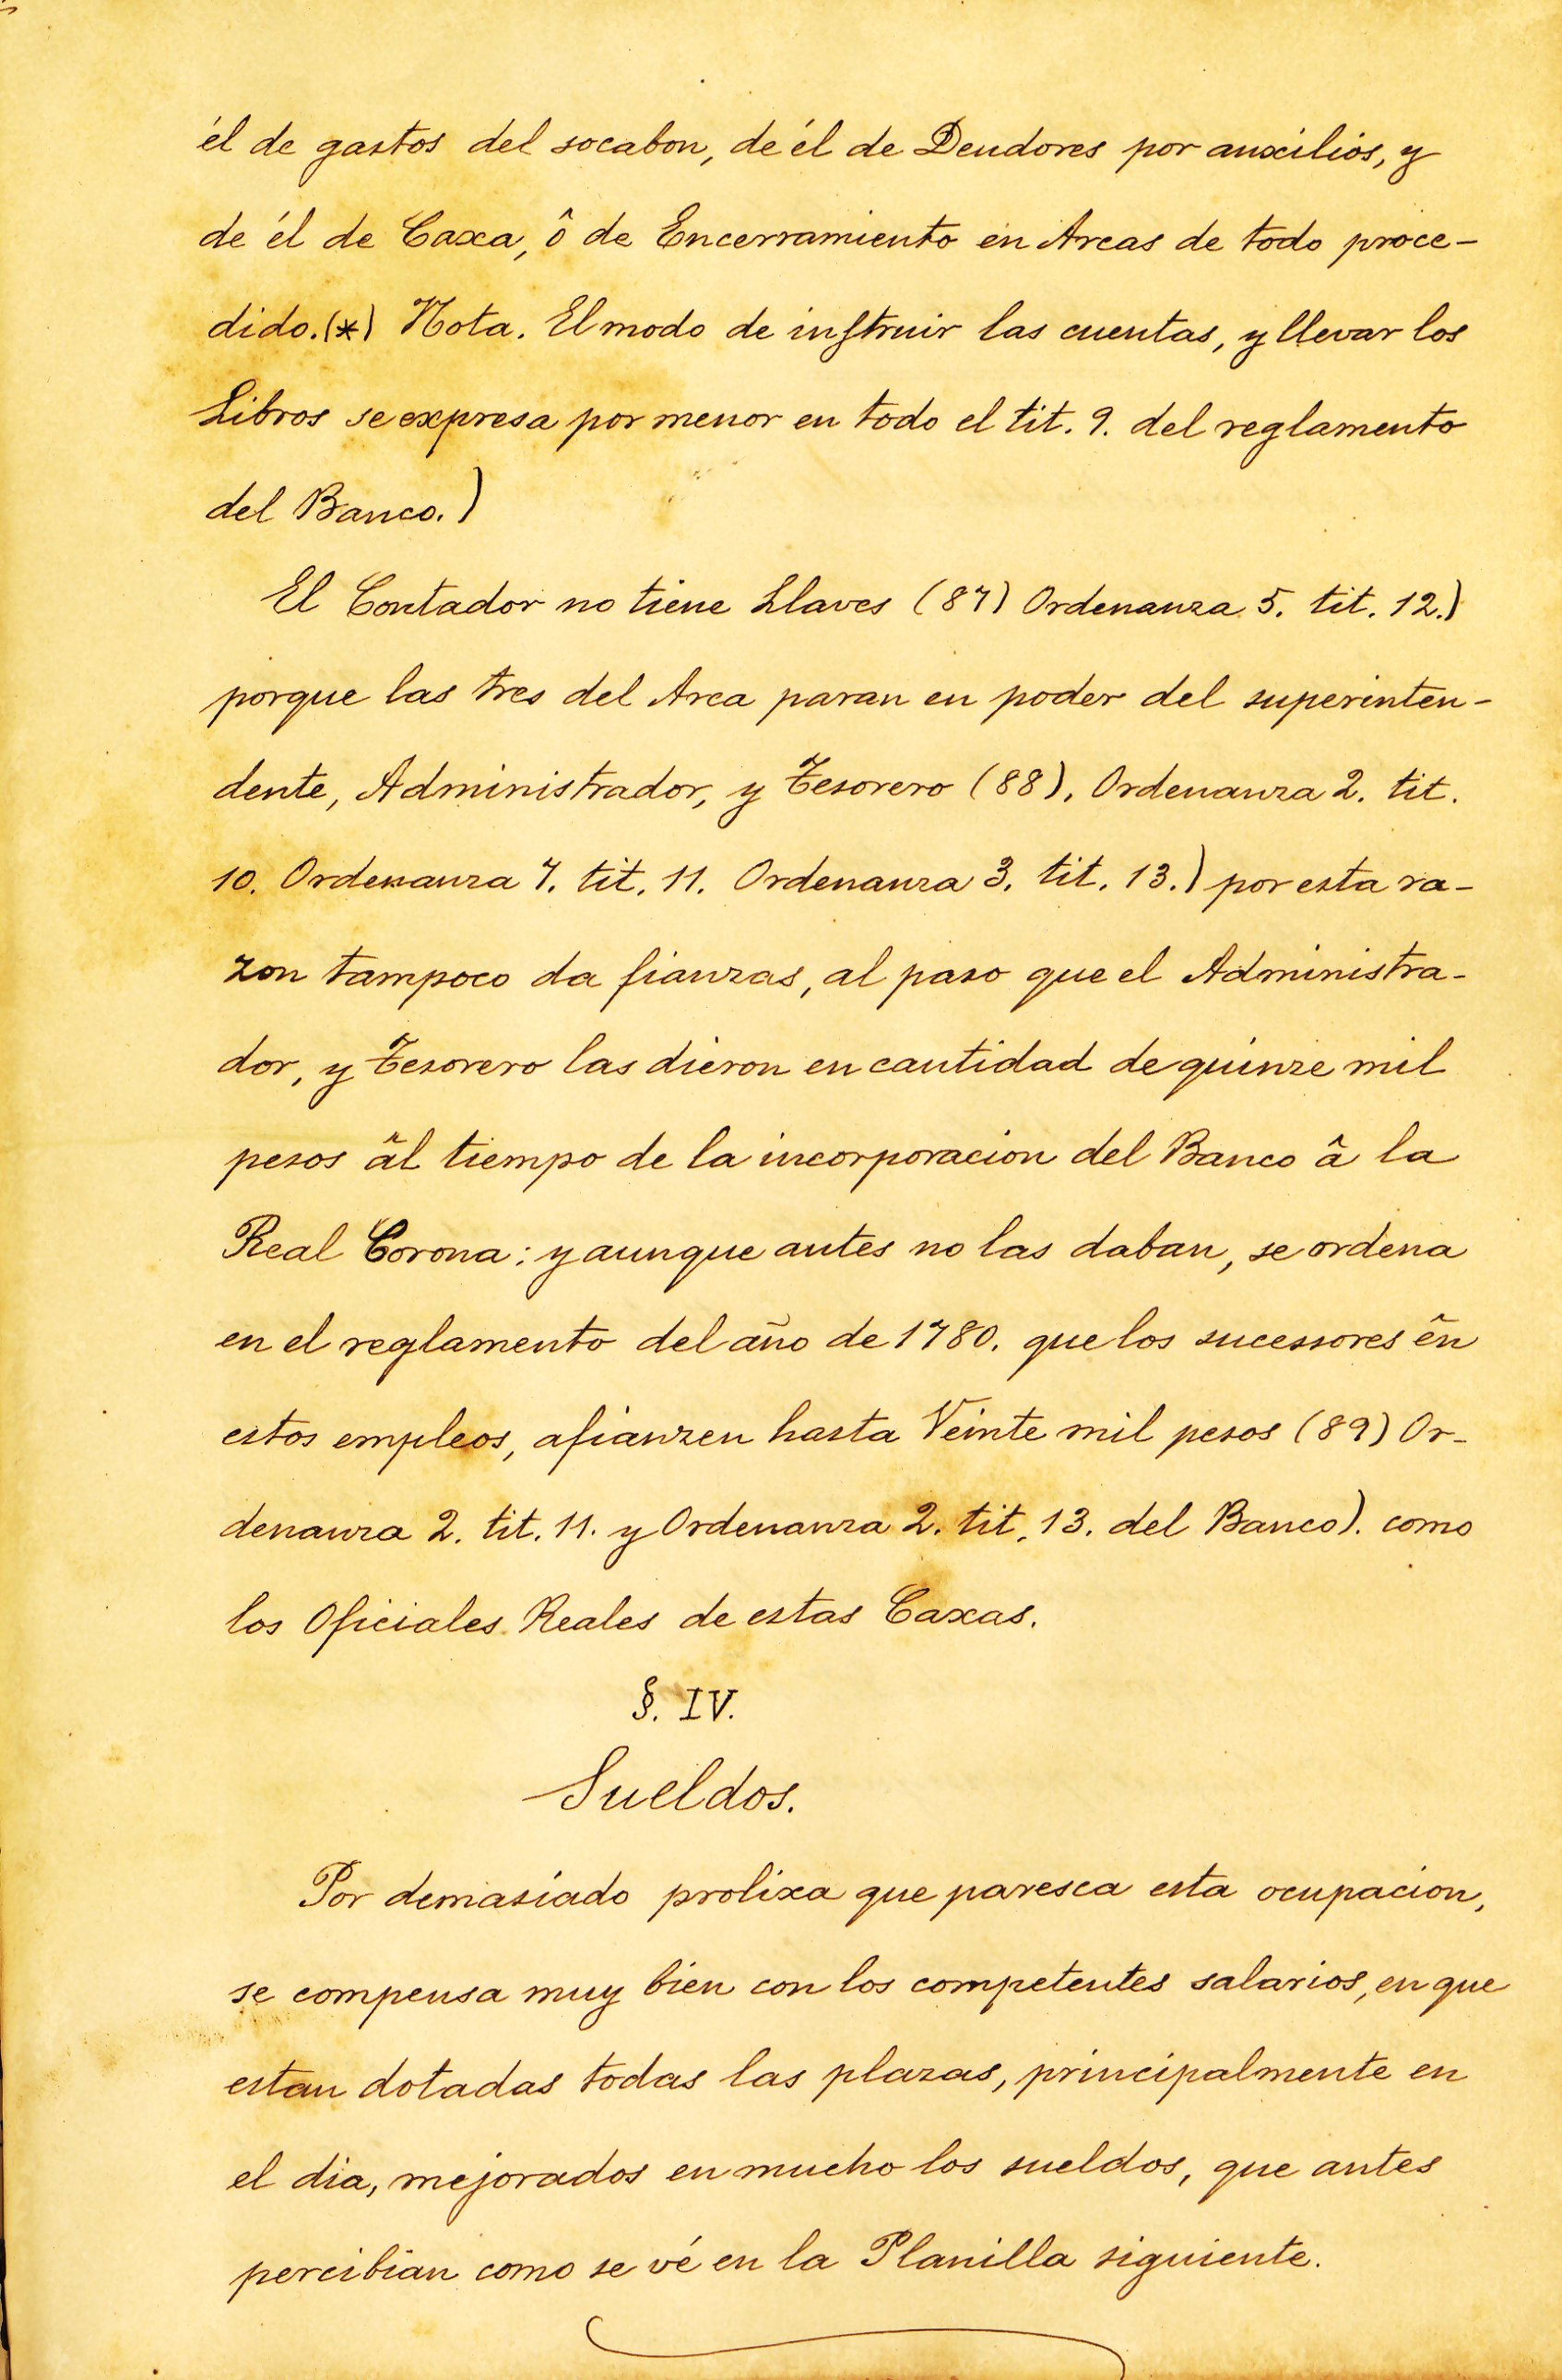 él de gastos del socabon, de él de Deudores por auxilios, y
de él de Caxa, ô de Encerramiento en Arcas de todo proce-
dido.(*) Nota. El modo de instruir las cuentas, y llevar los
Libros se expresa por menor en todo el tit. 9. del reglamento
del Banco.)
El Contador no tiene Llaves (87) Ordenanza 5. tit. 12.)
porque las tres del Arca paran en poder del superinten-
dente, Administrador, y Tesorero (88). Ordenanza 2. tit.
10. Ordenanza 7. tit. 11. Ordenanza 3. tit. 13.) por esta ra-
zon tampoco da fianzas, al paso que el Administra-
dor, y Tesorero las dieron en cantidad de quinze mil
pesos âl tiempo de la incorporacion del Banco â la
Real Corona: y aunque antes no las daban, se ordena
en el reglamento del año de 1780. que los sucessores ên
estos empleos, afianzen hasta Veinte mil pesos (89) Or-
denanza 2. tit. 11. y Ordenanza 2. tit. 13. del Banco). como
los Oficiales Reales de estas Caxas.
§. IV.
Sueldos.
Por demasiado prolixa que paresca esta ocupacion,
se compensa muy bien con los competentes salarios, en que
estan dotadas todas las plazas, principalmente en
el dia, mejorados en mucho los sueldos, que antes
percibian como se vé en la Planilla siguiente.